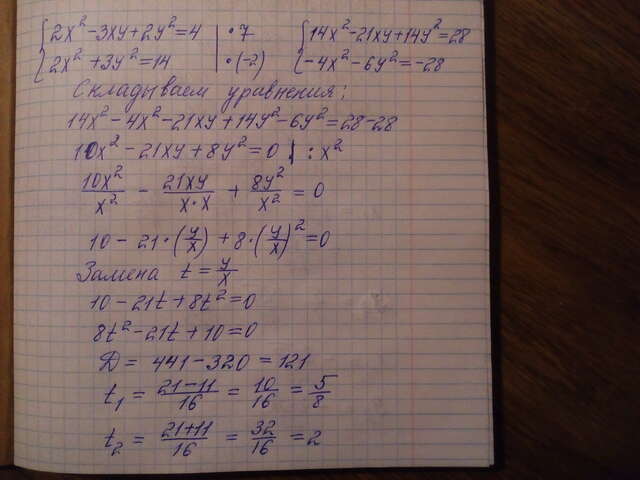 {2x² - 3xy + 2y² = 4 | · 7 {14x² - 21xy + 14y² = 28
{2x² + 3y² = 14 | · (-2) {-4x² - 6y² = -28
Складываем уравнения:
14x² - 4x² - 21xy + 14y² - 6y² = 28 - 28
10x² - 21xy + 8y² = 0 | : x²
10x²/x² - 21xy/x·x + 8y²/x² = 0
10 - 21·(y/x) + 8·(y/x)² = 0
Замена t = y/x
10 - 21t + 8t² = 0
8t² - 21t + 10 = 0
D = 441 - 320 = 121
t₁ = 21-11/16 = 10/16 = 5/8
t₂ = 21+11/16 = 32/16 = 2